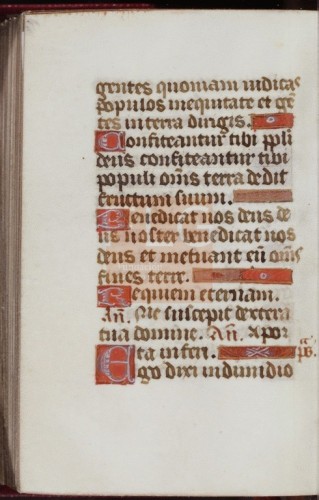 gentes quoniam iudicas
populos in equitate et gē
tes in terra dirigis.
Confiteantur tibi p̄li
deus confiteantur tibi
populi om̄s terra dedit
fructum suum.
Benedicat nos deus de
us noster benedicat nos
deus et metuant eū om̄s
fines terre.
Requiem eternam.
An̄. Me suscepit dextera
tua domine. An̄. A por
ta inferi. ps.
Ego dixi in dimidio